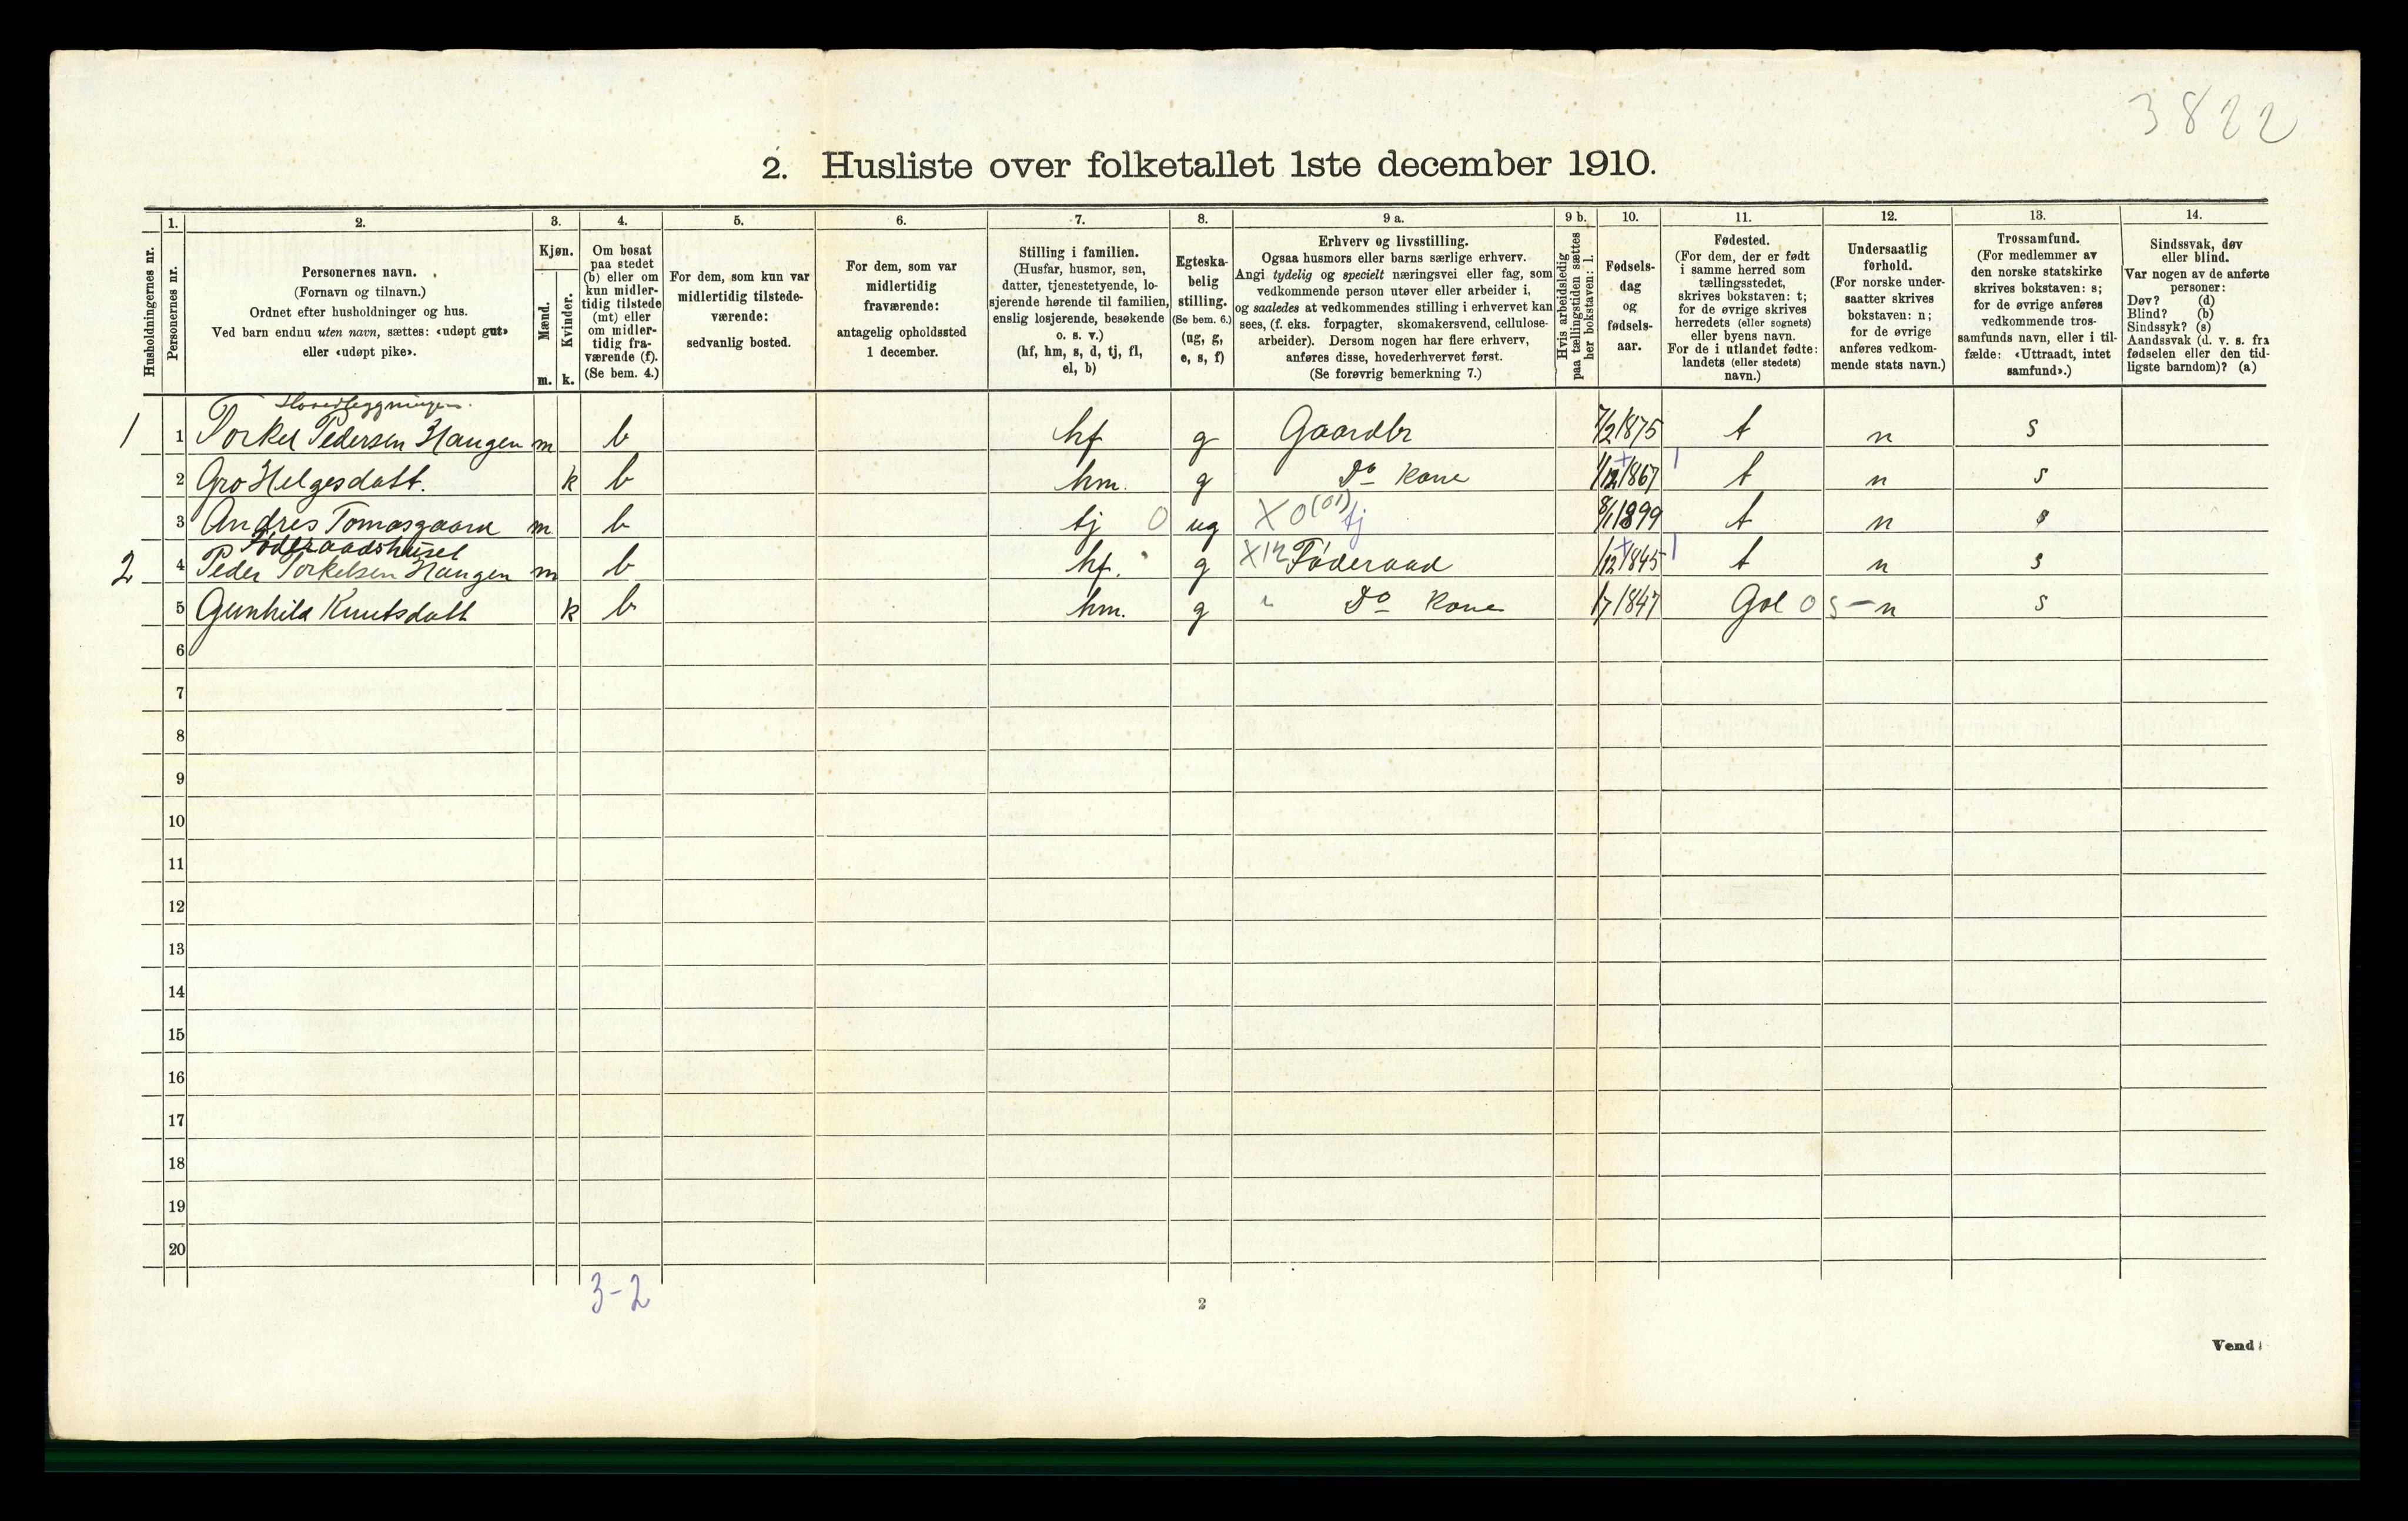 3822
2. Husliste over folketallet 1ste december 1910.
Husholdningernes nr.
1.
Personernes nr.
2.
Personernes navn.
(Fornavn og tilnavn.)
Ordnet efter husholdninger og hus.
Ved barn endnu uten navn, sættes: «udøpt gut»
eller «udøpt pike».
3.
Kjøn.
Mænd.
Kvinder.
m. k.
4.
Om bosat
paa stedet
(b) eller om
kun midler-
tidig tilstede
(mt) eller
om midler-
tidig fra-
værende (f).
(Se bem. 4.)
5.
For dem, som kun var
midlertidig tilstede-
værende:
sedvanlig bosted.
6.
For dem, som var
midlertidig
fraværende:
antagelig opholdssted
1 december.
7.
Stilling i familien.
(Husfar, husmor, søn,
datter, tjenestetyende, lo-
sjerende hørende til familien,
enslig losjerende, besøkende
o. s. v.)
(hf, hm, s, d, tj, fl,
el, b)
8.
Egteska-
belig
stilling.
(Se bem. 6.)
(ug, g,
e, s, f)
9 a.
Erhverv og livsstilling.
Ogsaa husmors eller barns særlige erhverv.
Angi tydelig og specielt næringsvei eller fag, som
vedkommende person utøver eller arbeider i,
og saaledes at vedkommendes stilling i erhvervet kan
sees, (f. eks. forpagter, skomakersvend, cellulose-
arbeider). Dersom nogen har flere erhverv,
anføres disse, hovederhvervet først.
(Se forøvrig bemerkning 7.)
9 b.
Hvis arbeidsledig
paa tællingstiden sættes
her bokstaven: l.
10.
Fødsels-
dag
og
fødsels-
aar.
11.
Fødested.
(For dem, der er født
i samme herred som
tællingsstedet,
skrives bokstaven: t;
for de øvrige skrives
herredets (eller sognets)
eller byens navn.
For de i utlandet fødte:
landets (eller stedets)
navn.)
12.
Undersaatlig
forhold.
(For norske under-
saatter skrives
bokstaven: n;
for de øvrige
anføres vedkom-
mende stats navn.)
13.
Trossamfund.
(For medlemmer av
den norske statskirke
skrives bokstaven: s;
for de øvrige anføres
vedkommende tros-
samfunds navn, eller i til-
fælde: «Uttraadt, intet
samfund».)
14.
Sindssvak, døv
eller blind.
Var nogen av de anførte
personer:
Døv? (d)
Blind? (b)
Sindssyk? (s)
Aandssvak (d. v. s. fra
fødselen eller den tid-
ligste barndom)? (a)
1 1 Torkel Pedersen Haugen m b hf g Gaardbr 7/2 1875 t n s
2 Gro Helgesdatt. k b hm. g Do Kone 1/12 1867 t n s
3 Andres Tomasgaard m b tj 0 ug X 0 (01) tj 8/1 1899 t n s
Føderaadshuset
2 4 Peder Torkelsen Haugen m b hf. g X12 Føderaad 1/12 1845 t n s
5 Gunhild Knutsdatt k b hm. g " Do Kone 1/7 1847 Gol 0 5 - n s
6
7
8
9
10
11
12
13
14
15
16
17
18
19
20
3-2
2
Vend!